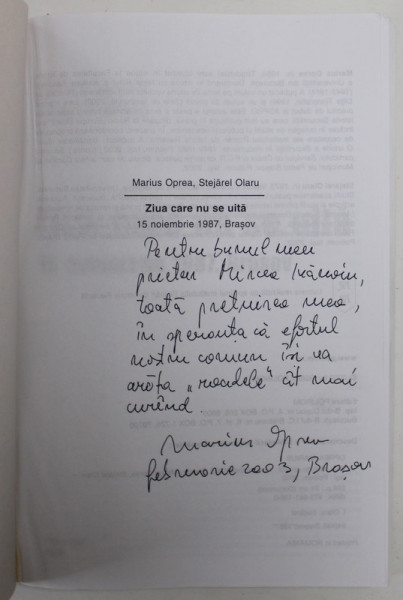 Marius Oprea, Stejărel Olaru
Ziua care nu se uită
15 noiembrie 1987, Brașov
Pentru bunul meu
prieten Mircea
toată prețuirea mea,
în speranța că efortul
nostru comun își va
arăta „roadele" cât mai
curând.
Marius Oprea
februarie 2003, Brașov